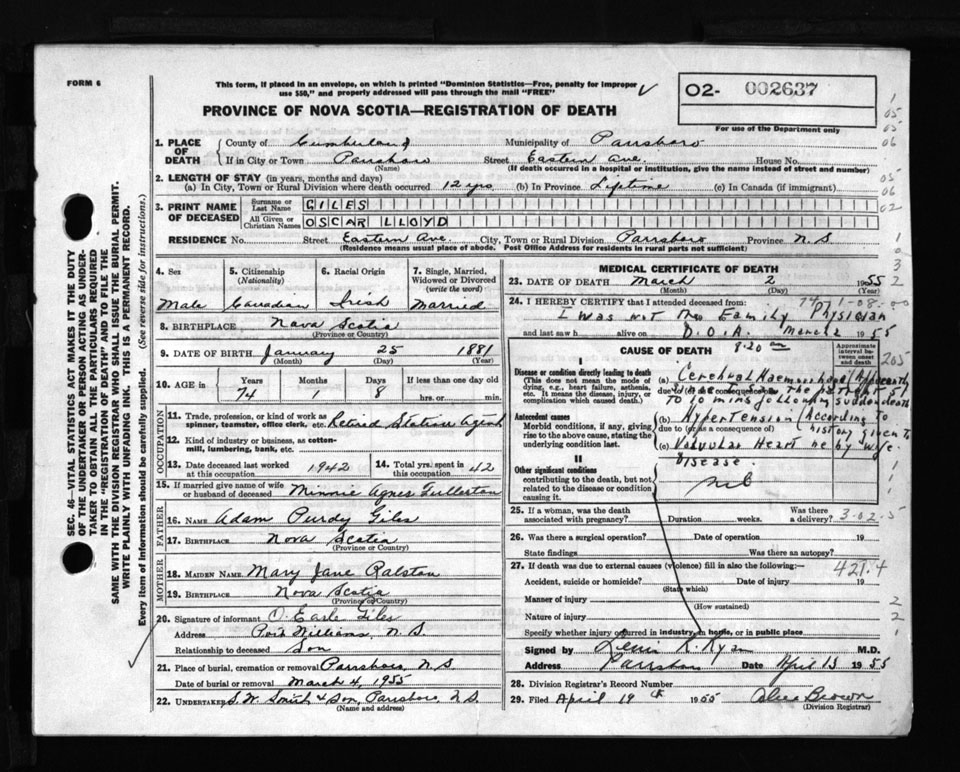 FORM 6
This form, if placed in an envelope, on which is printed "Dominion Statistics—Free, penalty for improper
use $50," and properly addressed will pass through the mail "FREE"
PROVINCE OF NOVA SCOTIA—REGISTRATION OF DEATH
02- 002637
For use of the Department only
1. PLACE OF DEATH
County of Cumberland (Name) Municipality of Parrsboro
If in City or Town Parrsboro Street Eastern Ave. House No.
(If death occurred in a hospital or institution, give the name instead of street and number)
2. LENGTH OF STAY (in years, months and days)
(a) In City, Town or Rural Division where death occurred 12 yrs (b) In Province Lifetime (c) In Canada (if immigrant)
3. PRINT NAME OF DECEASED
Surname or Last Name GILES
All Given or Christian Names OSCAR LLOYD
RESIDENCE No. Street Eastern Ave. City, Town or Rural Division Parrsboro Province N.S.
(Residence means usual place of abode. Post Office Address for residents in rural parts not sufficient)
SEC. 46—VITAL STATISTICS ACT MAKES IT THE DUTY
OF THE UNDERTAKER OR PERSON ACTING AS UNDER-
TAKER TO OBTAIN ALL THE PARTICULARS REQUIRED
IN THE "REGISTRATION OF DEATH" AND TO FILE THE
SAME WITH THE DIVISION REGISTRAR WHO SHALL ISSUE THE BURIAL PERMIT.
WRITE PLAINLY WITH UNFADING INK. THIS IS A PERMANENT RECORD.
Every item of information should be carefully supplied. (See reverse side for instructions.)
4. Sex Male
5. Citizenship (Nationality) Canadian
6. Racial Origin Irish
7. Single, Married, Widowed or Divorced (write the word) Married
8. BIRTHPLACE Nova Scotia
(Province or Country)
9. DATE OF BIRTH January 25 1881
(Month) (Day) (Year)
10. AGE in Years 74 Months 1 Days 8 If less than one day old hrs. or min.
OCCUPATION
11. Trade, profession, or kind of work as
spinner, teamster, office clerk, etc. Retired Station Agent
12. Kind of industry or business, as cotton-
mill, lumbering, bank, etc.
13. Date deceased last worked at this occupation 1942
14. Total yrs. spent in this occupation 42
15. If married give name of wife
or husband of deceased Minnie Agnes Fullerton
FATHER
16. NAME Adam Purdy Giles
17. BIRTHPLACE Nova Scotia
(Province or Country)
MOTHER
18. MAIDEN NAME Mary Jane Ralston
19. BIRTHPLACE Nova Scotia
(Province or Country)
20. Signature of informant O. Earle Giles
Address Port Williams, N.S.
Relationship to deceased Son
21. Place of burial, cremation or removal Parrsboro, N.S.
Date of burial or removal March 4, 1955
22. UNDERTAKER S. W. Smith & Son, Parrsboro, N.S.
(Name and address)
MEDICAL CERTIFICATE OF DEATH
23. DATE OF DEATH March 2 1955
(Month) (Day) (Year)
24. I HEREBY CERTIFY that I attended deceased from
I was not the Family Physician
and last saw h alive on D.O.A. March 2 1955
8.20 am
CAUSE OF DEATH
Approximate interval between onset and death
I
Disease or condition directly leading to death
(This does not mean the mode of
dying, e.g., heart failure, asthenia,
etc. It means the disease, injury, or
complication which caused death.)
(a) Cerebral Haemorrhage (Apparently
due to (or as a consequence of)
I was to saw the patient 5
to 10 mins following sudden death
Antecedent causes
Morbid conditions, if any, giving
rise to the above cause, stating the
underlying condition last.
(b) Hypertension (According to
due to (or as a consequence of) history given to
(c) Valvular Heart me by wife.
Disease.
II
Other significant conditions
contributing to the death, but not
related to the disease or condition
causing it. nil
25. If a woman, was the death
associated with pregnancy? Duration weeks. Was there a delivery? 3-02-5
26. Was there a surgical operation? Date of operation 19
State findings Was there an autopsy?
27. If death was due to external causes (violence) fill in also the following:— 421.4
Accident, suicide or homicide? Date of injury 19
(State which)
Manner of injury
(How sustained)
Nature of injury
Specify whether injury occurred in industry, in home, or in public place
Signed by R. Ryan M.D.
Address Parrsboro Date April 13 1955
28. Division Registrar's Record Number
29. Filed April 19th 1955 Alice Brown
(Division Registrar)